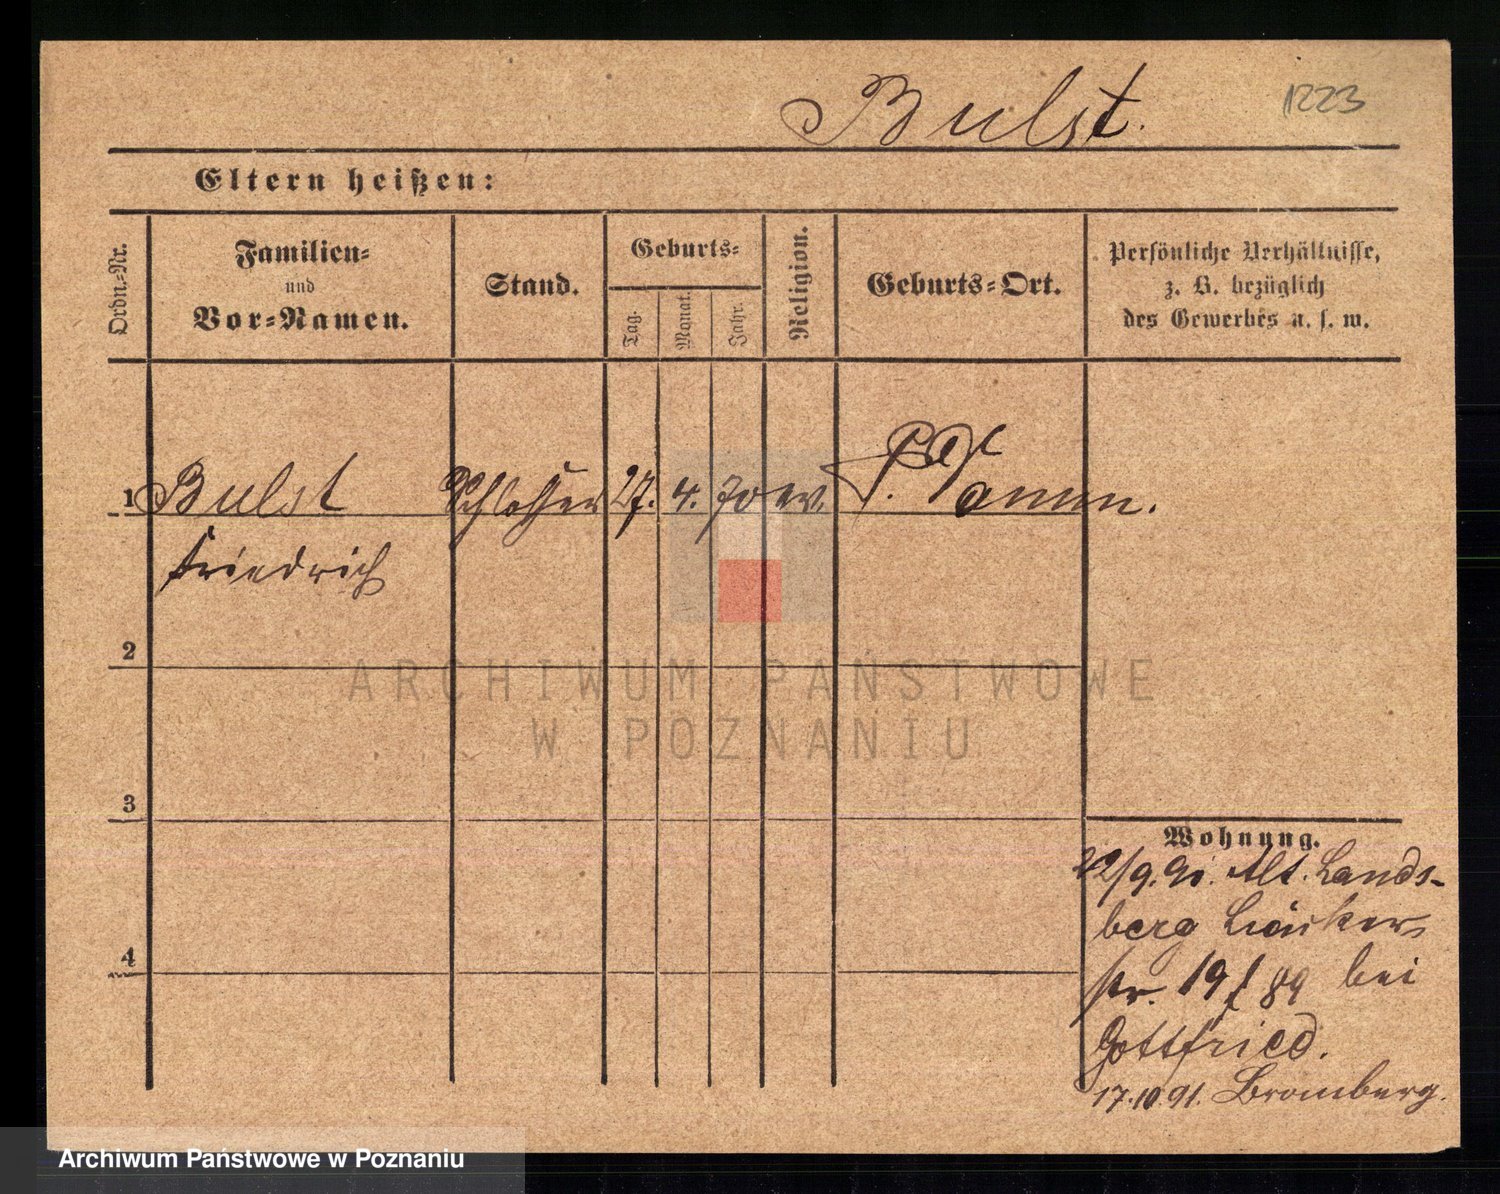 Bulst.
1223
Eltern heißen:
Ordn.-Nr.
Familien-
und
Vor-Namen.
Stand.
Geburts-
Tag.
Monat.
Jahr.
Religion.
Geburts-Ort.
Persönliche Verhältnisse,
z. B. bezüglich
des Gewerbes u. s. w.
1 Bulst Schlosser 27. 4. 70 ev.
Friedrich
2
3
4
Wohnung.
22/9. 90. Alt. Lands-
berg
str. 19 / 89 bei
Gottfried.
17.10.91. Bromberg.
ARCHIWUM PAŃSTWOWE
W POZNANIU
Archiwum Państwowe w Poznaniu